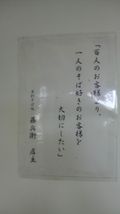 「百人のお客様より、
一人のそば好きのお客様を
大切にしたい」
店主